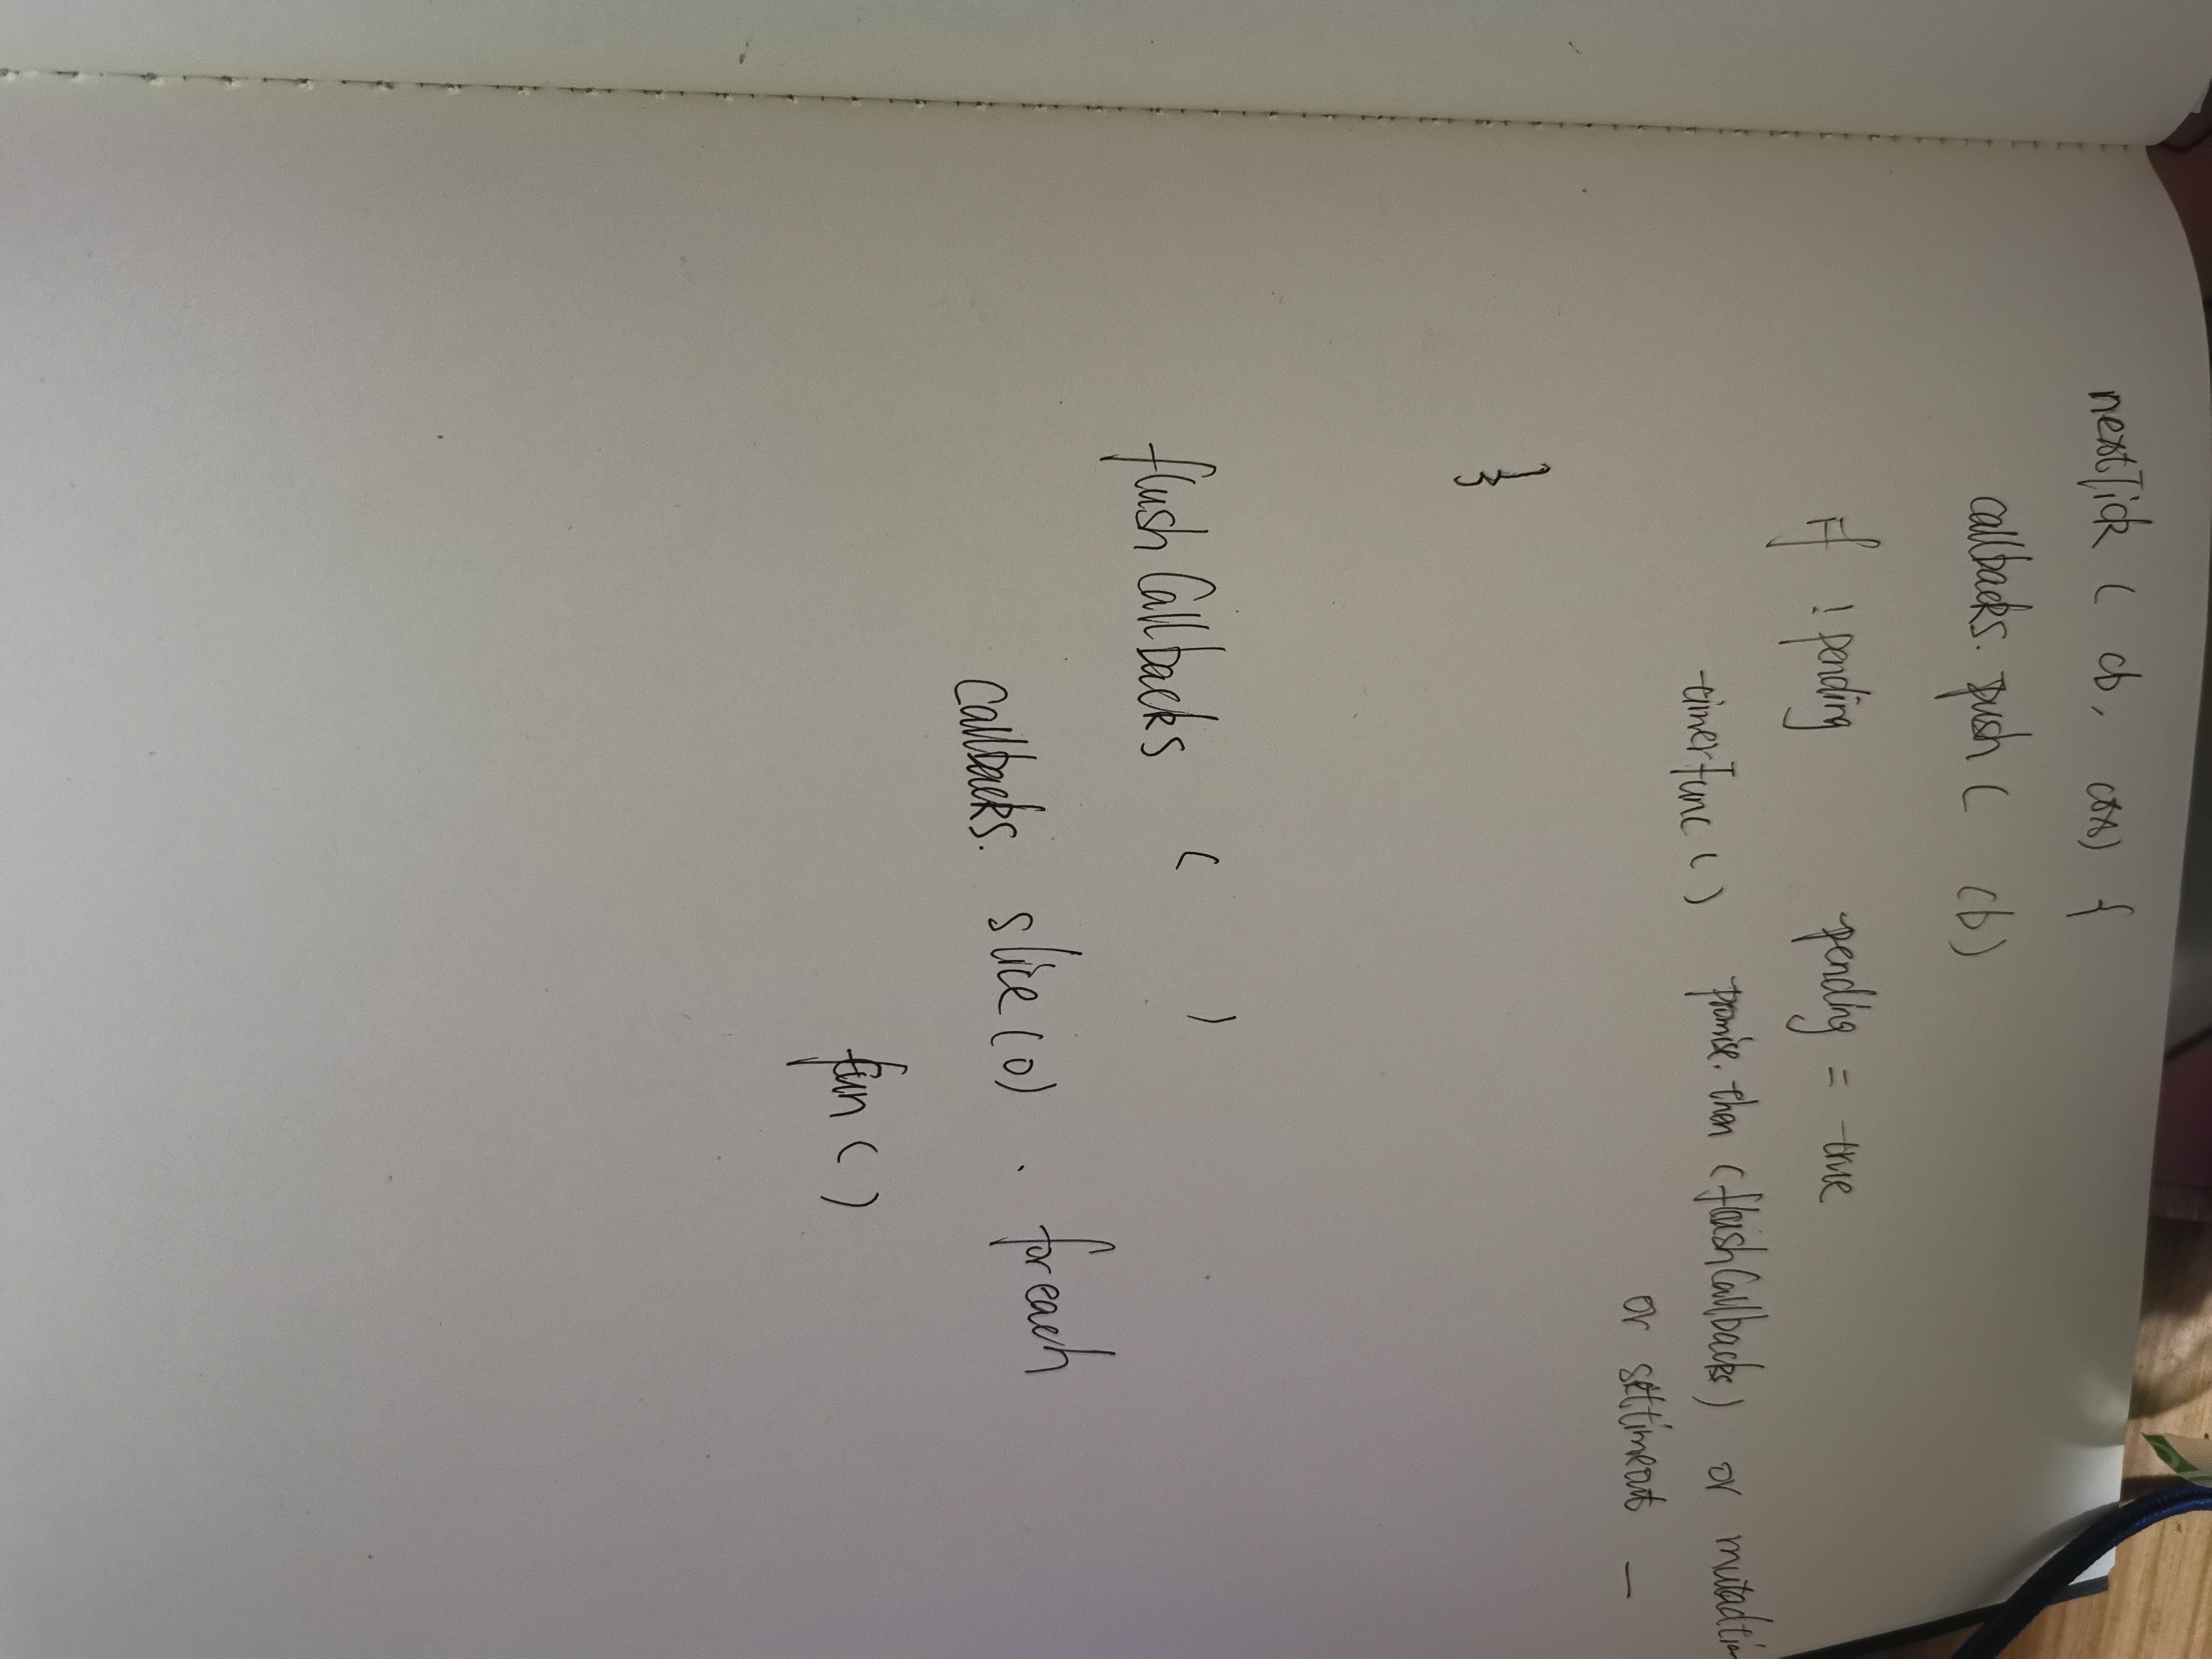 nextTick ( cb, ctx) {
callbacks. push ( cb)
if ! pending pending = true
timerFunc ( ) promise. then (flushCallbacks) or mutation
or settimeout —
}
flushCallbacks ( )
Callbacks. slice (0) . foreach
fun ( )